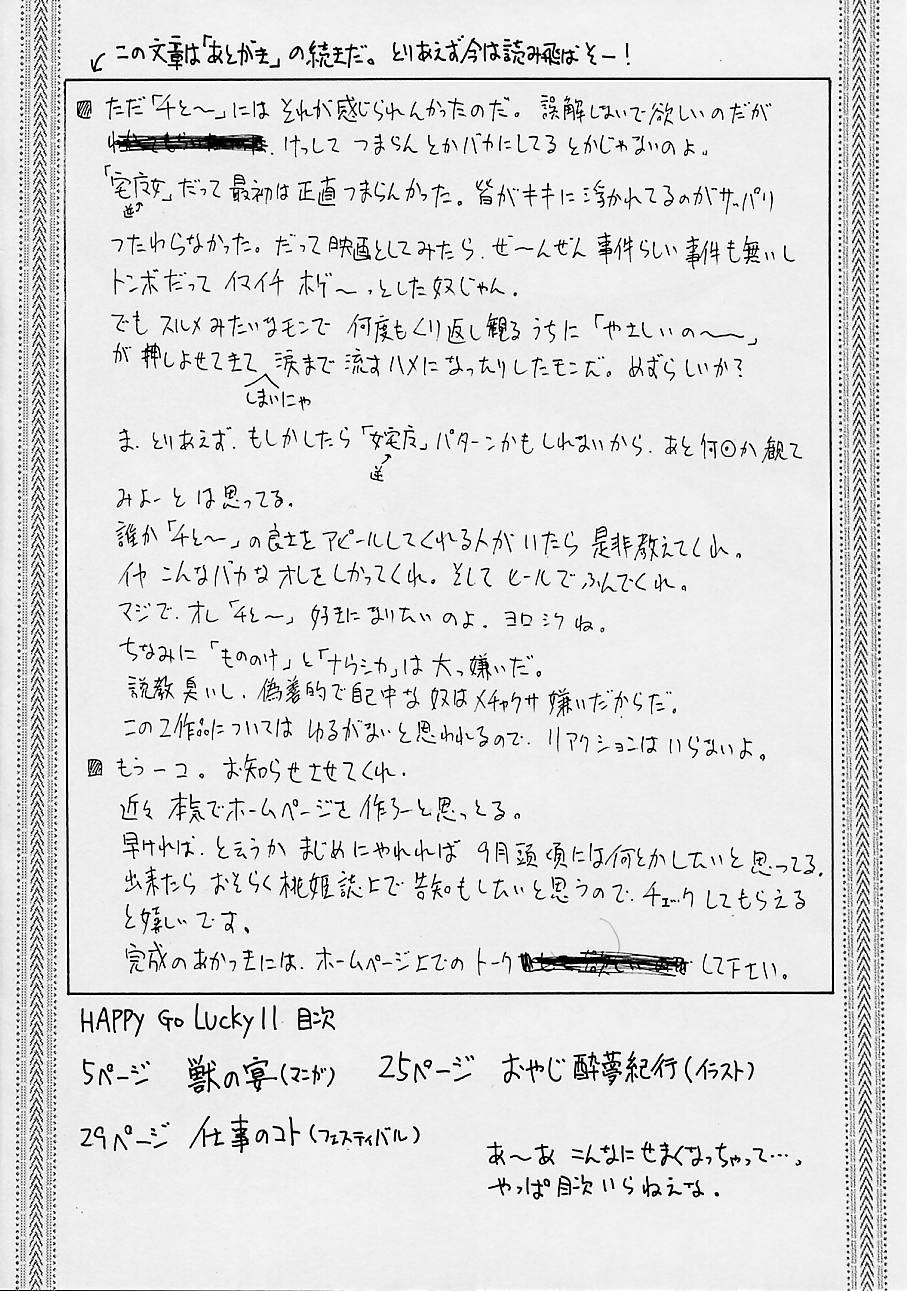 この文章は「あとがき」の続きだ。とりあえず今は読み飛ばそー!
ただ「千と〜」には それが感じられんかったのだ。誤解しないで欲しいのだが
けっして つまらんとかバカにしてるとかじゃないのよ。
「宅広女」だって最初は正直つまらんかった。皆がキキに浮かれてるのがサッパリ
逆↗
つたわらなかった。だって映画としてみたら、ぜ〜んぜん事件らしい事件も無いし
トンボだって イマイチ ボゲ〜っとした奴じゃん。
でも スルメみたいなモンで 何度もくり返し観るうちに「やさしいの〜〜」
が押しよせてきて 涙まで流すハメになったりしたモンだ。めずらしいか?
しまいにゃ
ま、とりあえず、もしかしたら「女宅広」パターンかもしれないから、あと何回か観て
逆
みよーとは思ってる。
誰か「千と〜」の良さをアピールしてくれる人がいたら 是非教えてくれ。
イヤ こんなバカなオレをしかってくれ。そして ヒールでふんでくれ。
マジで、オレ「千と〜」好きになりたいのよ。ヨロシクね。
ちなみに「もののけ」と「ナウシカ」は大っ嫌いだ。
説教臭いし、偽善的で自己中な奴はメチャクサ嫌いだからだ。
この2作品については ゆるがないと思われるので、リアクションはいらないよ。
もう一コ。お知らせさせてくれ。
近々 本気でホームページを作ろーと思っとる。
早ければ、と云うか まじめにやれれば 9月頭頃には何とかしたいと思ってる。
出来たら おそらく桃姫誌上で告知もしたいと思うので、チェックしてもらえる
と嬉しいです。
完成のあかつきには、ホームページ上でのトーク して下さい。
HAPPY Go Lucky 11 目次
5ページ 獣の宴(マンガ) 25ページ おやじ酔夢紀行(イラスト)
29ページ 仕事のコト(フェスティバル)
あ〜あ こんなにせまくなっちゃって…。
やっぱ目次いらねえな。